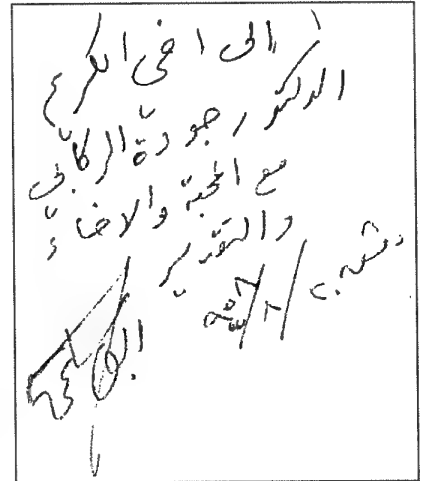 إلى أخي الكريم
الدكتور جودة الركابي
مع المحبة والاخاء
والتقدير
دمشق